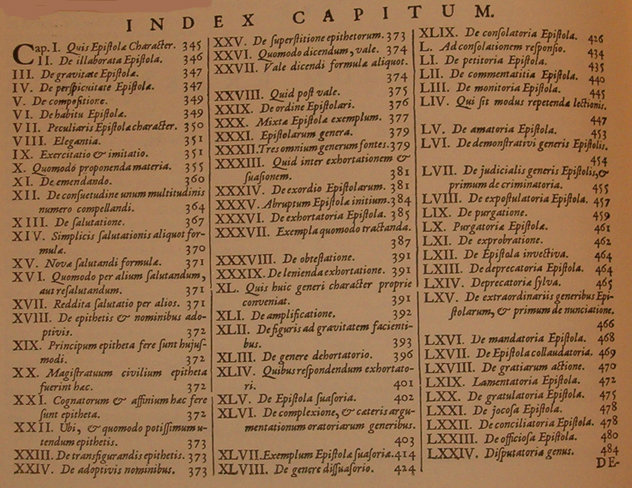 INDEX CAPITUM.
Cap. I. Quis Epistolæ Character. 345
II. De illaborata Epistola. 346
III. De gravitate Epistolæ. 347
IV. De perspicuitate Epistolæ. 347
V. De compositione. 349
VI. De habitu Epistolæ. 349
VII. Peculiaris Epistolæ character. 350
VIII. Elegantia. 351
IX. Exercitatio & imitatio. 351
X. Quomodo proponenda materia. 355
XI. De emendando. 360
XII. De consuetudine unum multitudinis
numero compellandi. 364
XIII. De salutatione. 367
XIV. Simplicis salutationis aliquot for-
mulæ. 370
XV. Novæ salutandi formulæ. 371
XVI. Quomodo per alium salutandum,
aut resalutandum. 371
XVII. Reddita salutatio per alios. 371
XVIII. De epithetis & nominibus ado-
ptivis. 372
XIX. Principum epitheta fere sunt hujus-
modi. 372
XX. Magistratuum civilium epitheta
fuerint hæc. 372
XXI. Cognatorum & affinium hæc fere
sunt epitheta. 372
XXII. Ubi, & quomodo potissimum u-
tendum epithetis. 373
XXIII. De transfigurandis epithetis. 373
XXIV. De adoptivis nominibus. 373
XXV. De superstitione epithetorum. 373
XXVI. Quomodo dicendum, vale. 374
XXVII. Vale dicendi formulæ aliquot.
374
XXVIII. Quid post vale. 375
XXIX. De ordine Epistolari. 376
XXX. Mixtæ Epistolæ exemplum. 377
XXXI. Epistolarum genera. 379
XXXII. Tres omnium generum fontes. 379
XXXIII. Quid inter exhortationem &
suasionem. 381
XXXIV. De exordio Epistolarum. 381
XXXV. Abruptum Epistolæ initium. 384
XXXVI. De exhortatoria Epistola. 385
XXXVII. Exempla quomodo tractanda.
387
XXXVIII. De obtestatione. 391
XXXIX. De lenienda exhortatione. 391
XL. Quis huic generi character proprie
conveniat. 391
XLI. De amplificatione. 392
XLII. De figuris ad gravitatem facienti-
bus. 393
XLIII. De genere dehortatorio. 396
XLIV. Quibus respondendum exhortato-
ri. 401
XLV. De Epistola suasoria. 402
XLVI. De complexione, & cæteris argu-
mentationum oratoriarum generibus.
403
XLVII. Exemplum Epistolæ suasoriæ. 414
XLVIII. De genere dissuasorio. 424
XLIX. De consolatoria Epistola. 426
L. Ad consolationem responsio. 434
LI. De petitoria Epistola. 435
LII. De commentatitia Epistola. 440
LIII. De monitoria Epistola. 445
LIV. Qui sit modus repetendæ lectionis.
447
LV. De amatoria Epistola. 453
LVI. De demonstrativi generis Epistolis.
454
LVII. De judicialis generis Epistolis, &
primum de criminatoria. 455
LVIII. De expostulatoria Epistola. 457
LIX. De purgatione. 459
LX. Purgatoria Epistola. 461
LXI. De exprobratione. 462
LXII. De Epistola invectiva. 464
LXIII. De deprecatoria Epistola. 464
LXIV. Deprecatoria sylva. 465
LXV. De extraordinariis generibus Epi-
stolarum, & primum de nunciatione.
466
LXVI. De mandatoria Epistola. 468
LXVII. De Epistola collaudatoria. 469
LXVIII. De gratiarum actione. 470
LXIX. Lamentatoria Epistola. 472
LXX. De gratulatoria Epistola. 475
LXXI. De jocosa Epistola. 478
LXXII. De conciliatoria Epistola. 478
LXXIII. De officiosa Epistola. 480
LXXIV. Disputatoria genus. 484
DE-